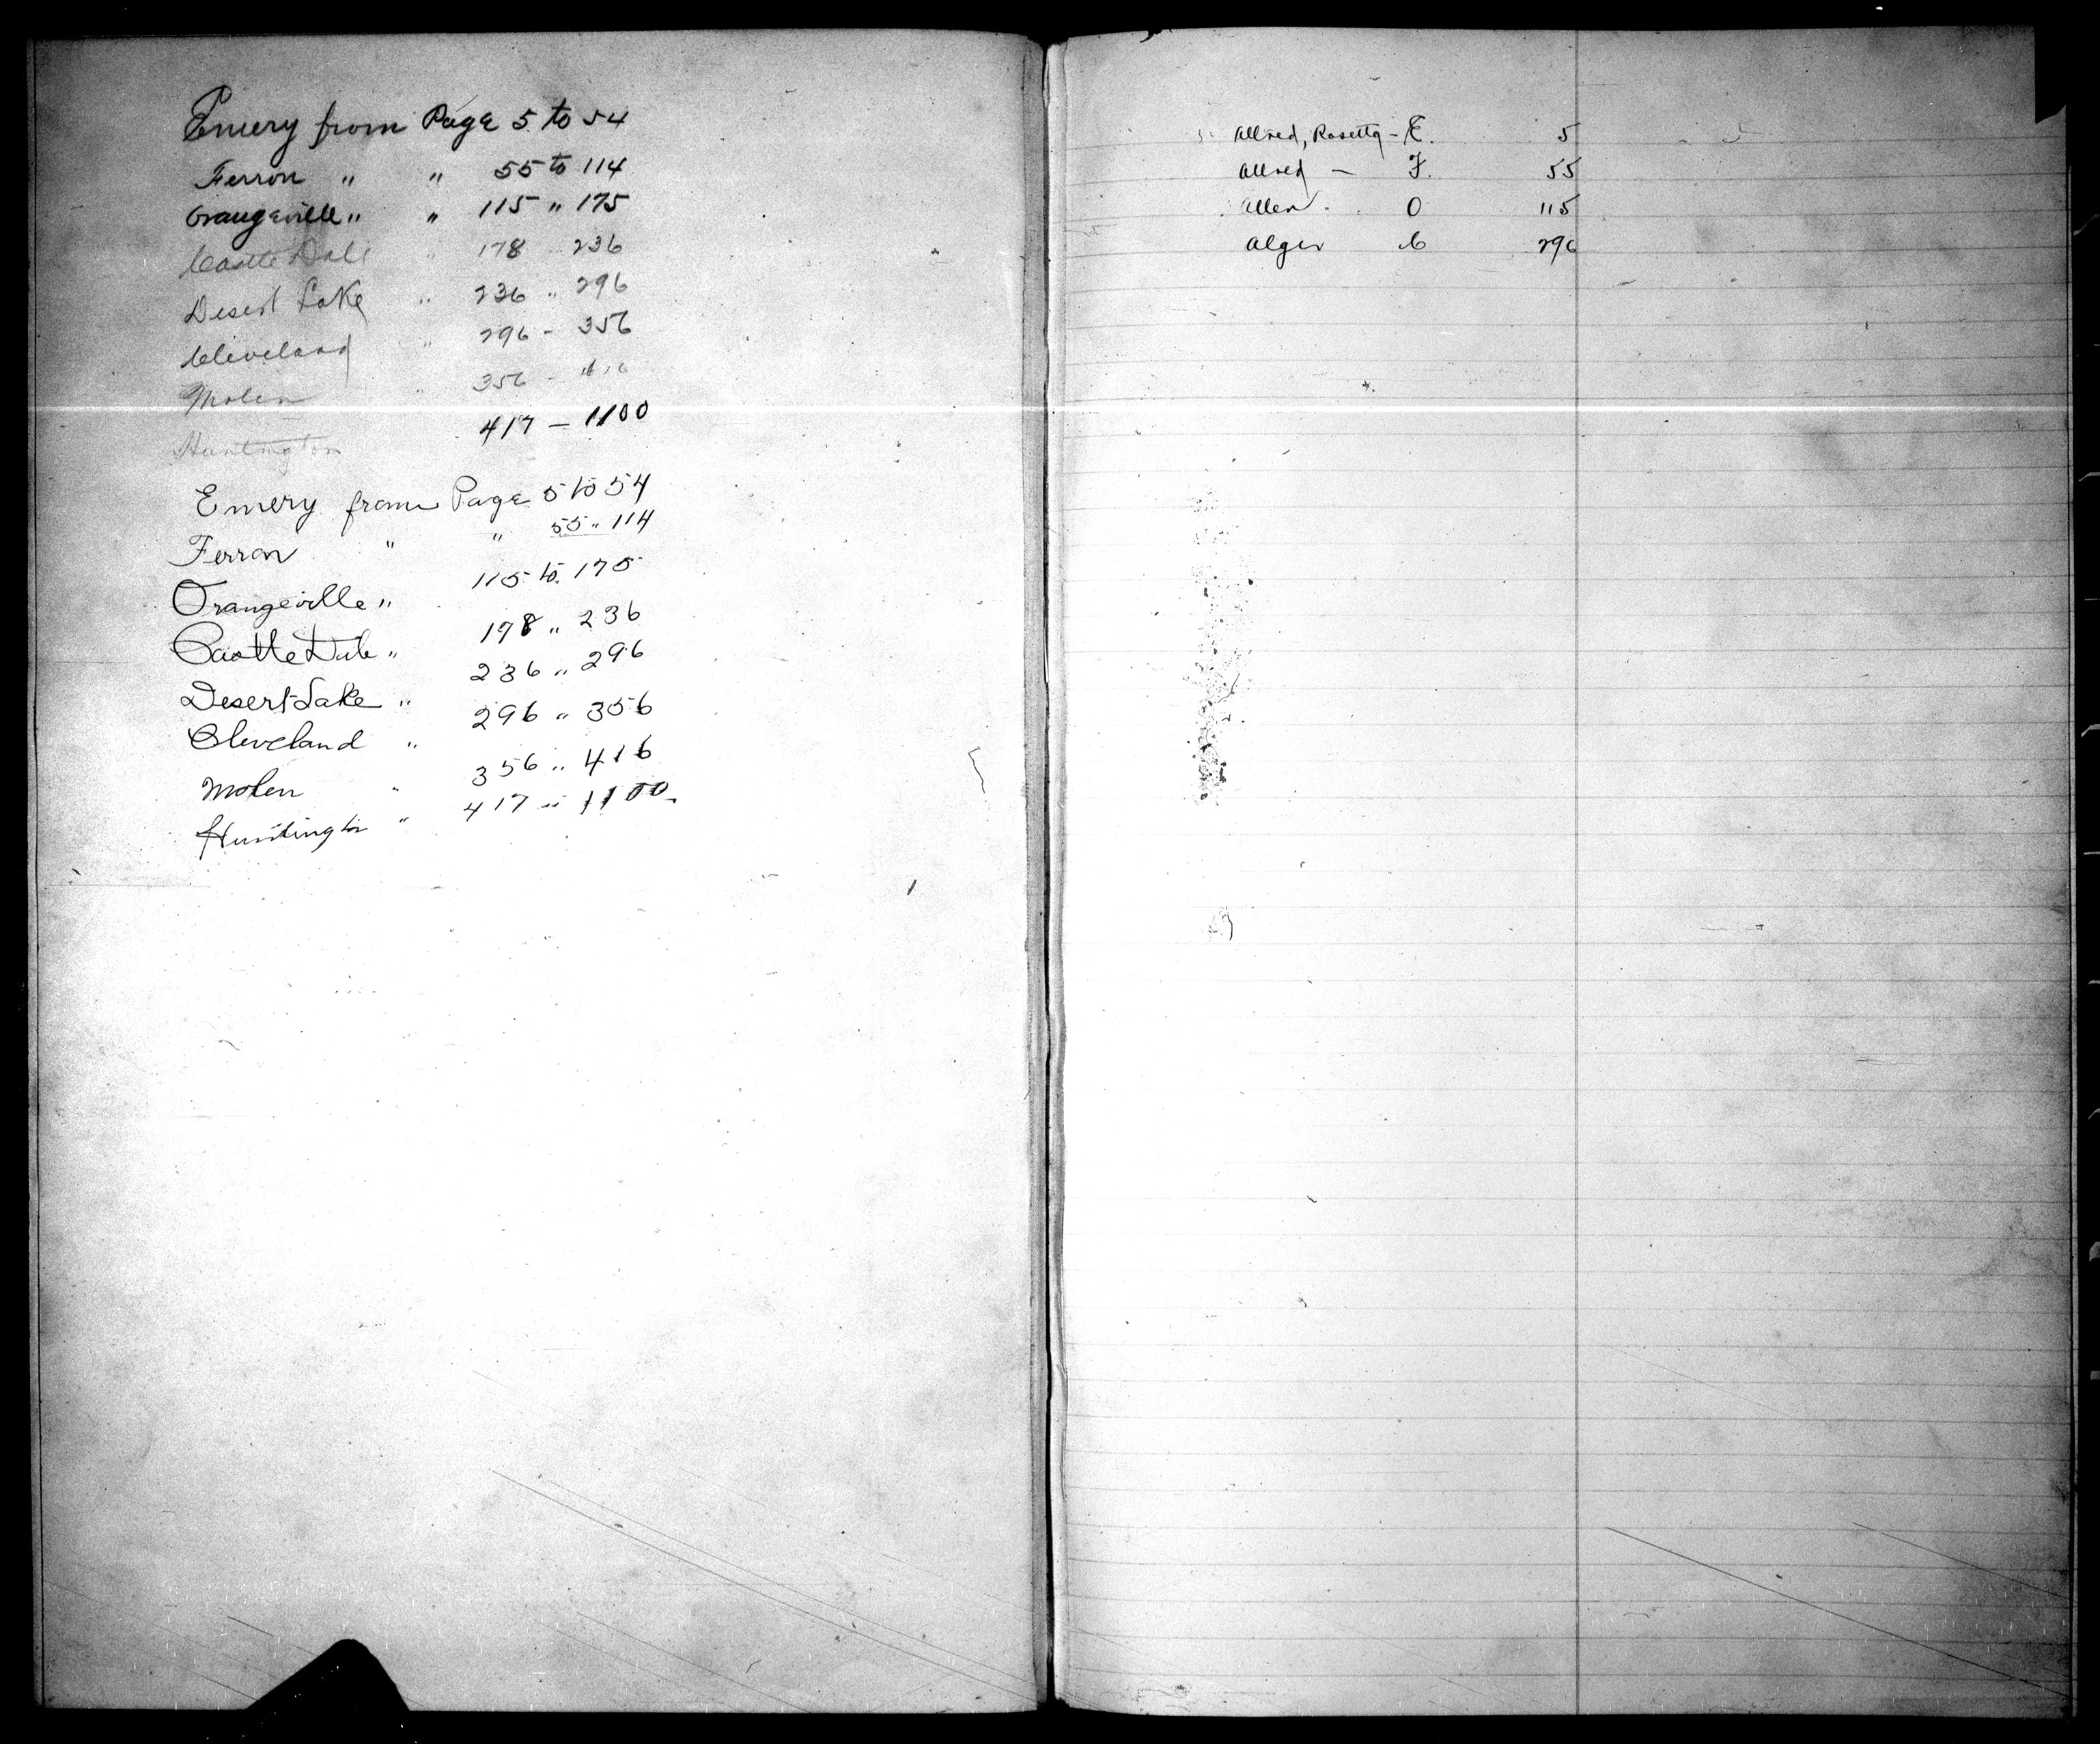 Emery from Page 5 to 54
Ferron " " 55 to 114
Orangeville " " 115 " 175
Castle Dale " 178 " 236
Desert Lake " 236 " 296
Cleveland " 296 - 356
Molen " 356 - 416
Huntington 417 - 1100
Emery from Page 5 to 54
Ferron " " 55 " 114
Orangeville " 115 to 175
Castle Dale " 178 " 236
Desert Lake " 236 " 296
Cleveland " 296 " 356
Molen " 356 " 416
Huntington " 417 " 1100
Allred, Rosetta - E. 5
Allred - F. 55
Allen O 115
Alger C 296